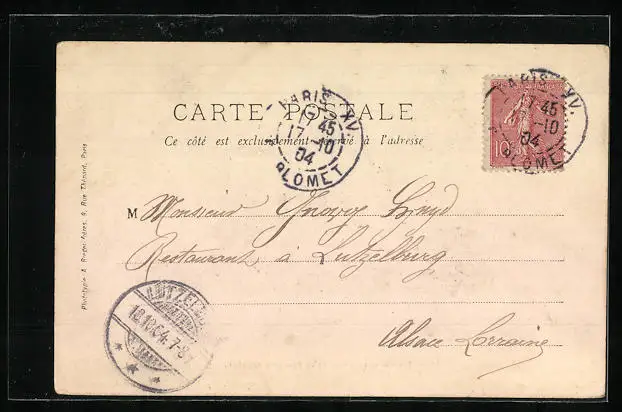 CARTE POSTALE
Ce côté est exclusivement réservé à l'adresse
PARIS XV.
17 45
17 -10
04
R. BLOMET
PARIS XV.
17 45
17 -10
04
R. BLOMET
10
M Monsieur
Restaurant à Lutzelburg
Alsace Lorraine
LÜTZEL
18.10.04. 7-8
Phototypie A. Bergeret, 9, Rue Thénard, Paris